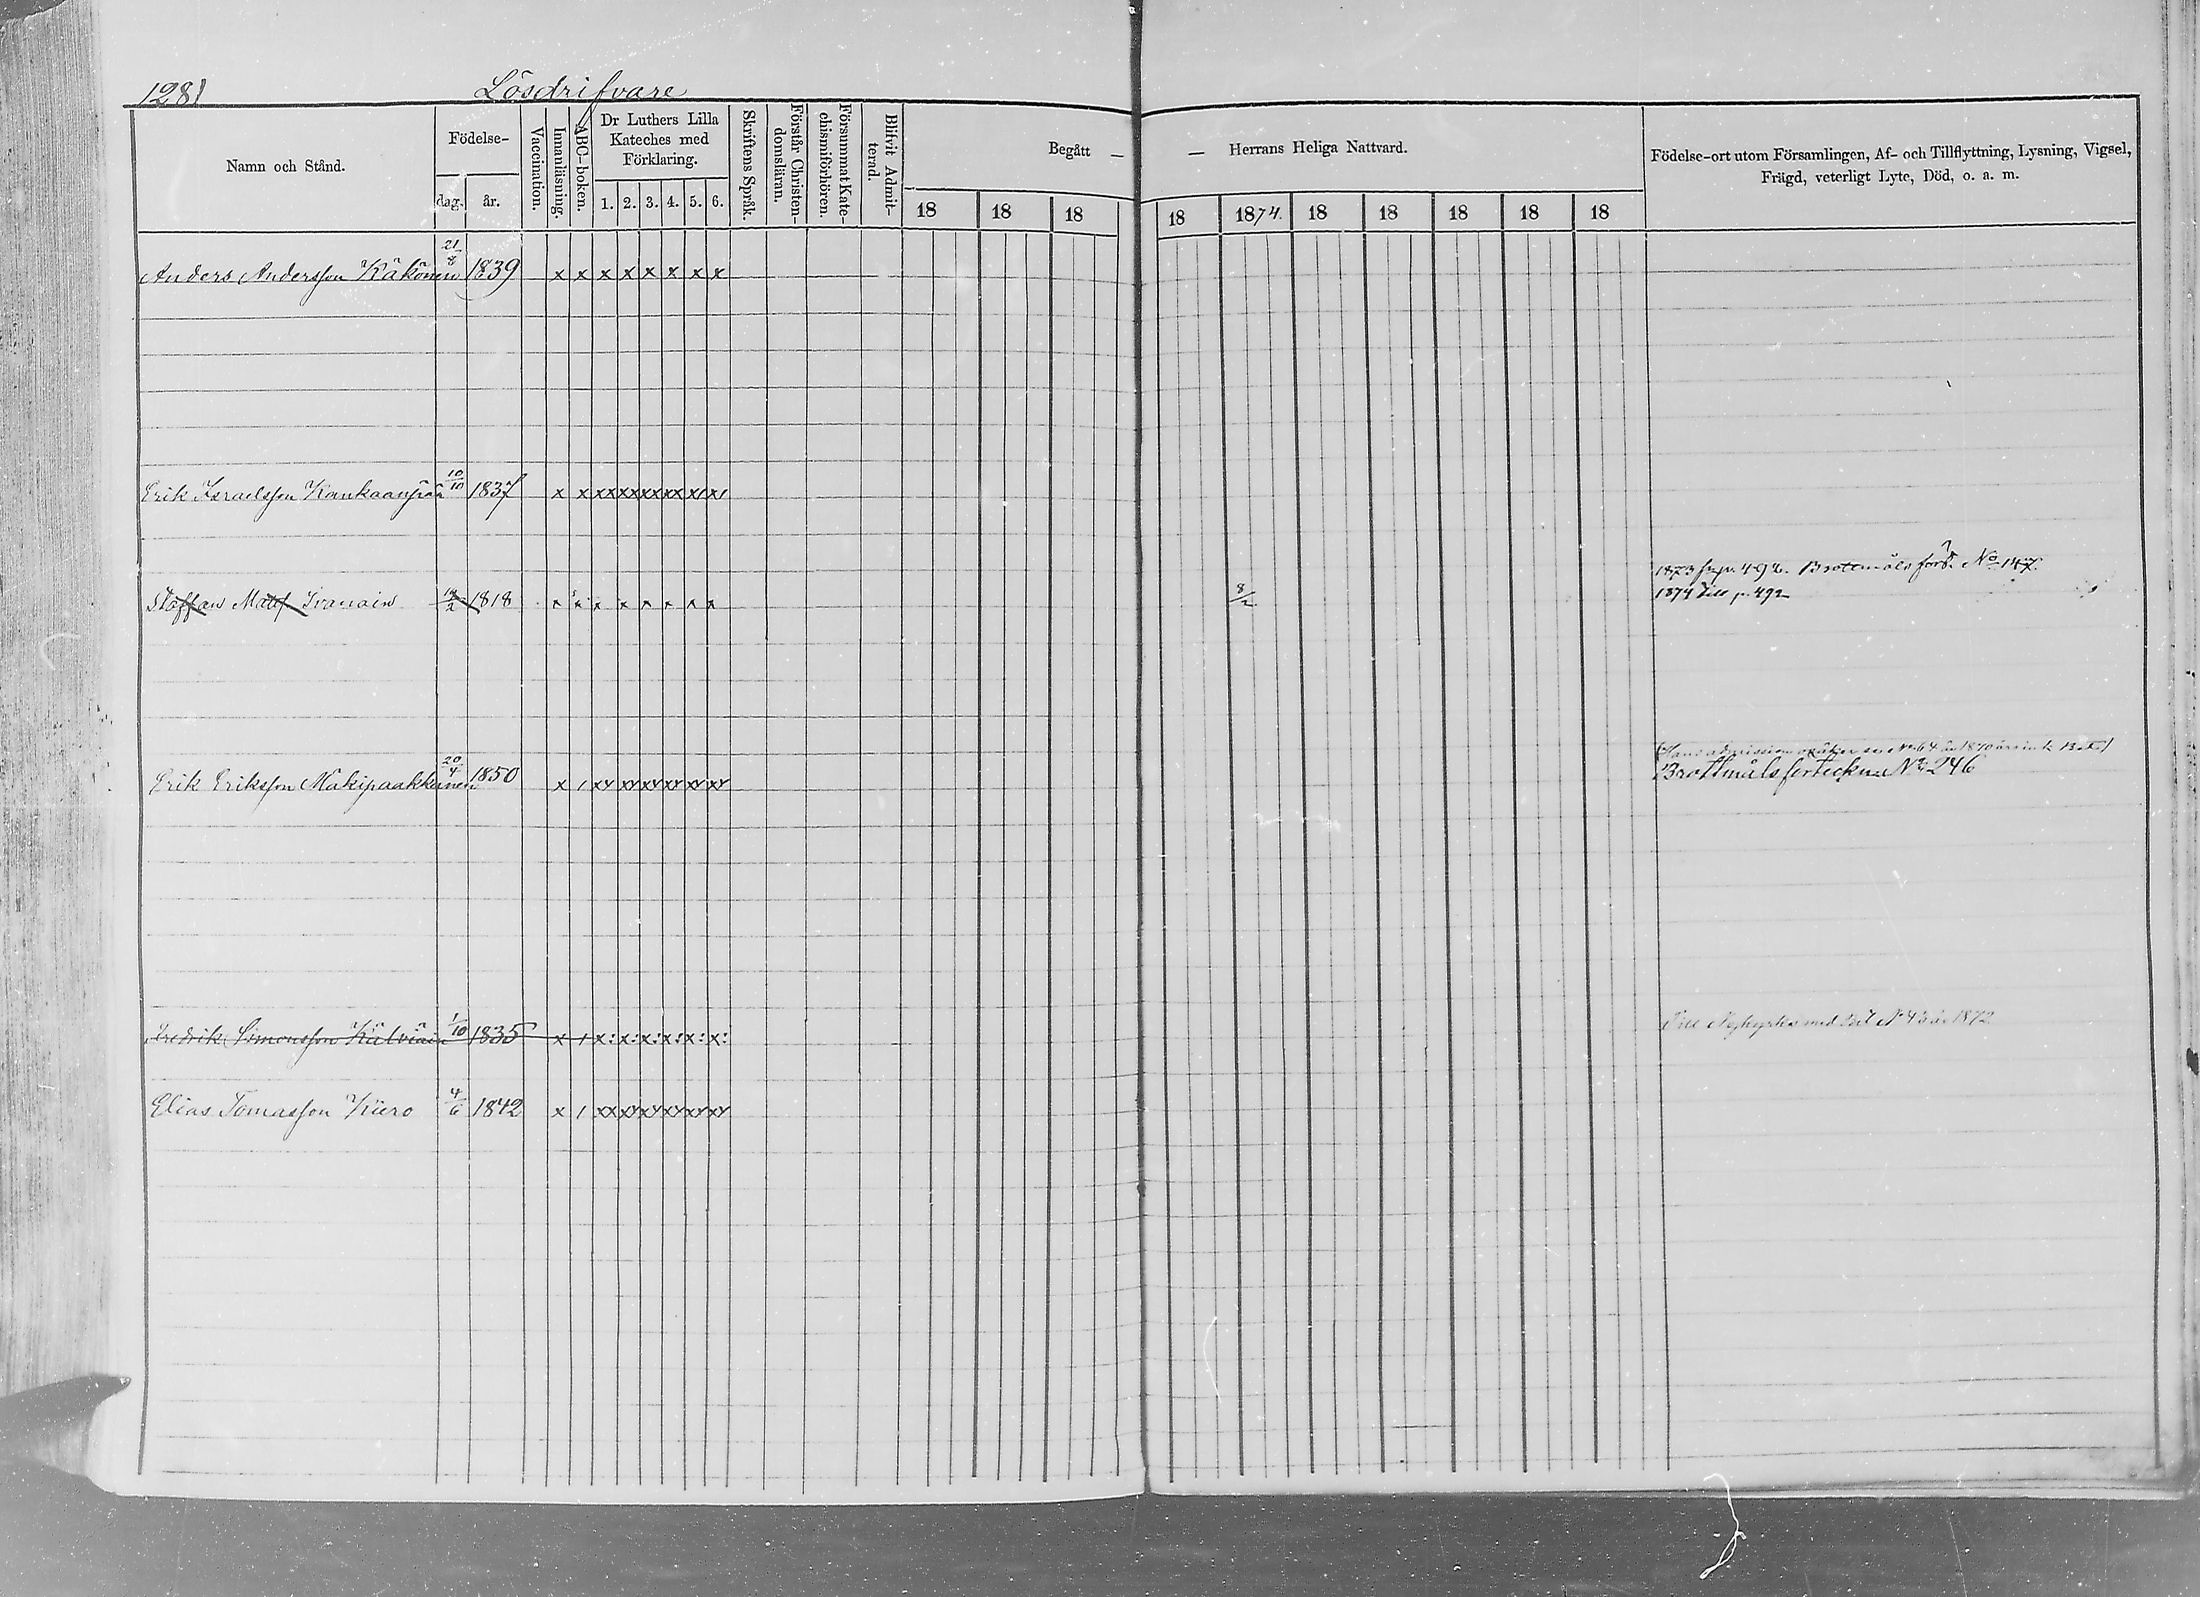 1281
Lösdrifvare
Namn och Stånd.
Födelse-
dag.
år.
Vaccination.
Innanläsning.
ABC-boken.
Dr Luthers Lilla
Kateches med
Förklaring.
1. 2. 3. 4. 5. 6.
Skriftens Språk.
Förstår Christen-
domsläran.
Försummat Kate-
chismiförhören.
Blifvit Admit-
terad.
Begått —
— Herrans Heliga Nattvard.
18 18 18 18 1874. 18 18 18 18 18
Födelse-ort utom Församlingen, Af- och Tillflyttning, Lysning, Vigsel,
Frägd, veterligt Lyte, Död, o. a. m.
Anders Andersson Käkönen 21/8 1839 x x x x x x x x
Erik Israelsson Kankaanpää 10/10 1837 x x xx xx xx xx x x
1873 492. Brottmåls No 147.
Staffan Mattss Ivanain 1818 x x x x x x x x 8/2 1874 till p. 492
Erik Eriksson Mäkipaakkanen 20/4 1850 x 1 xx xx xx xx xx xx Brottmålsforteckn No 246
Fredrik Simonsson Kälviäin 1/10 1835 x 1 x: x: x: x: x: x: Till med bet No 43 år 1872
Elias Tomasson Kiero 4/6 1842 x 1 xx xx xx xx xx xx